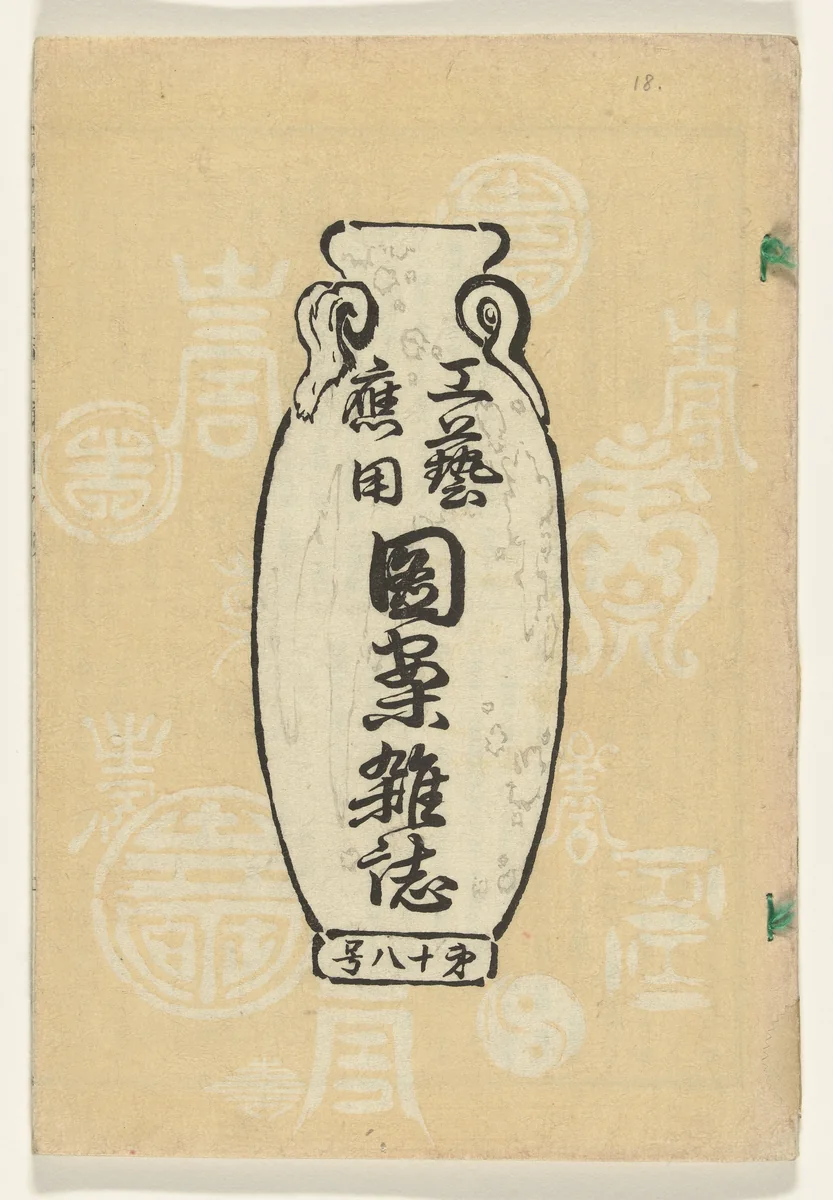 18.
工藝
應用
圖案雑誌
号八十第